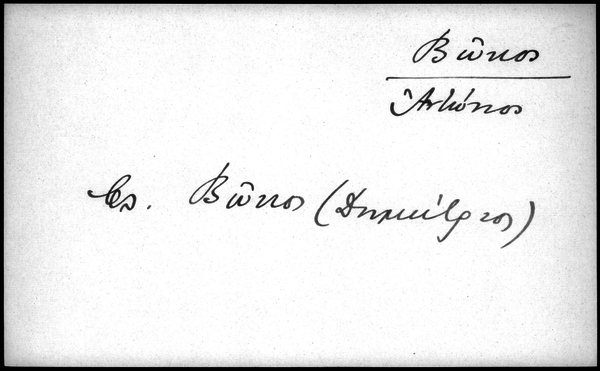 Βῶκος
Ἀντώνιος
Βλ. Βῶκος (Δημήτριος)